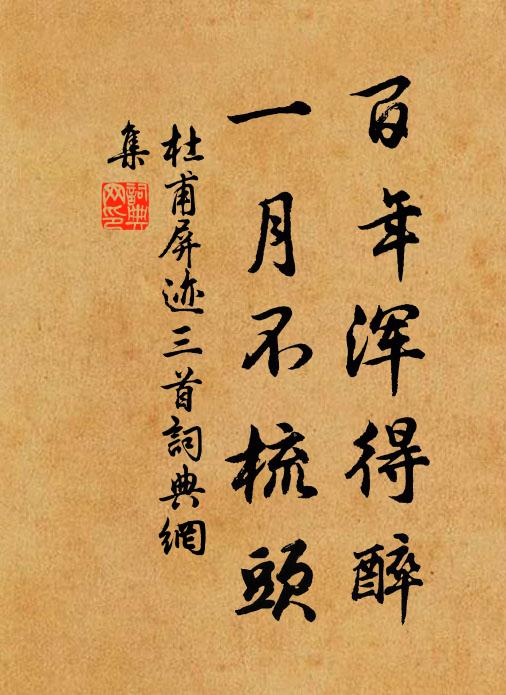 百年浑得醉
一月不梳頭
杜甫屏迹三首詞典網
集
詞典
网印